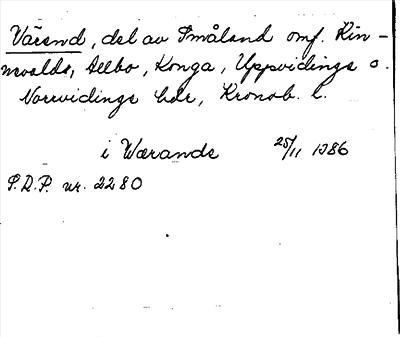 Värend, del av Småland omf. Kin-
nevalds, Allbo, Konga, Uppvidinge o.
Norrvidinge hdr, Kronob. l.
i Wærands 25/11 1386
S.R.P. nr. 2280